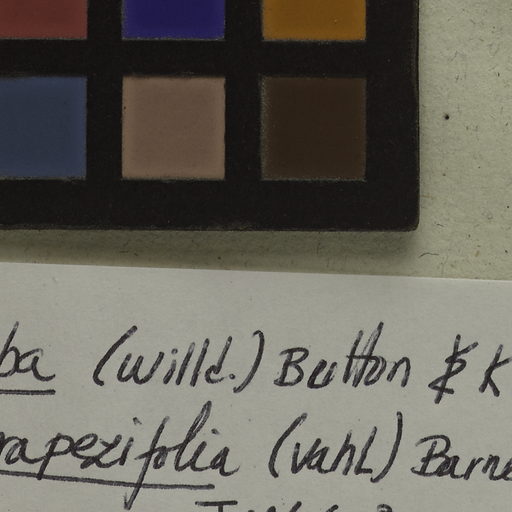 ba (willd.) Button & K
rapezifolia (vahl) Barne